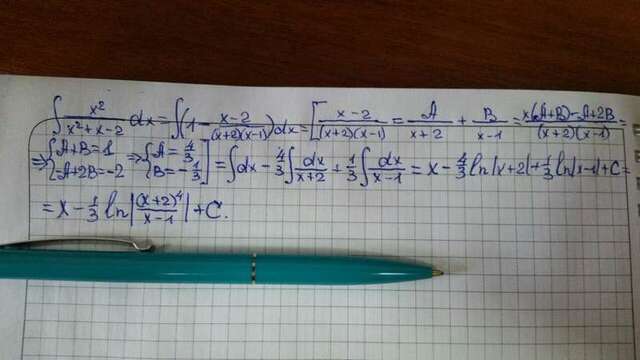 ∫ x²/(x²+x-2) dx = ∫(1 - (x-2)/((x+2)(x-1)))dx = [(x-2)/((x+2)(x-1)) = A/(x+2) + B/(x-1) = (x(A+B)-A+2B)/((x+2)(x-1)) =
⇒ {A+B=1 {-A+2B=-2 ⇒ {A=4/3 {B=-1/3] = ∫dx - 4/3 ∫ dx/(x+2) + 1/3 ∫ dx/(x-1) = x - 4/3 ln|x+2| + 1/3 ln|x-1| + C =
= x - 1/3 ln|(x+2)⁴/(x-1)| + C.